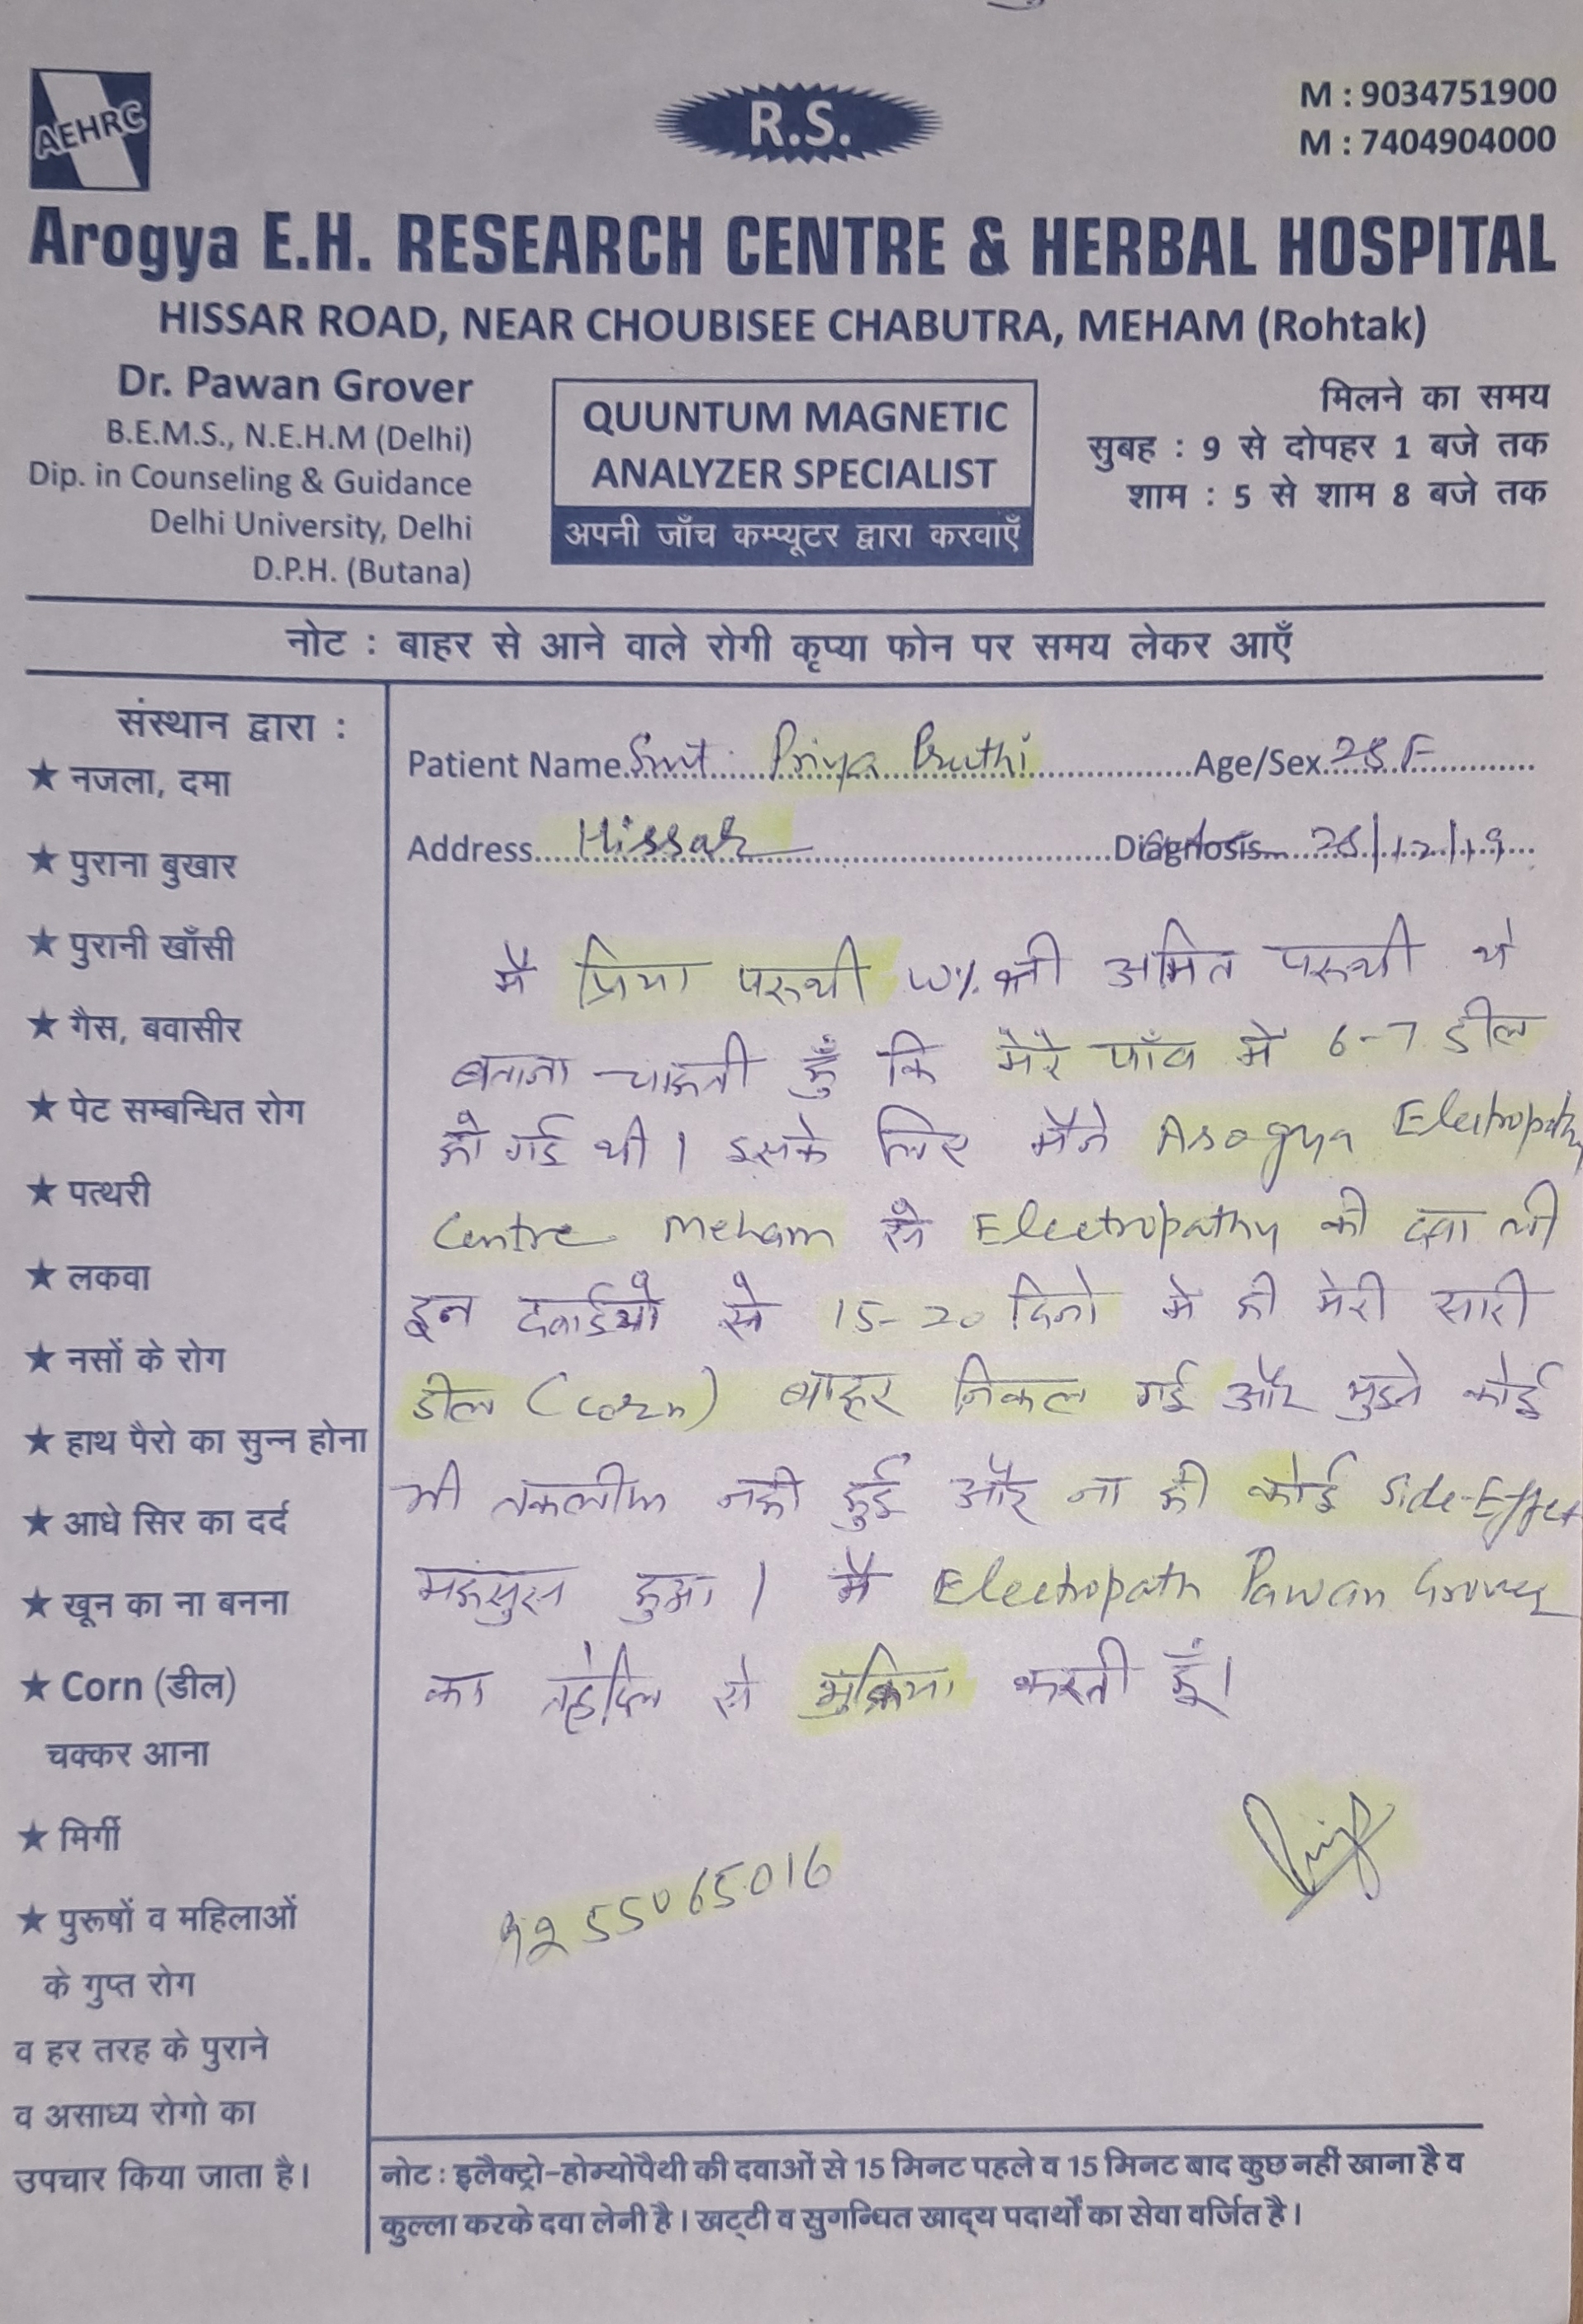 AEHRC
R.S.
M : 9034751900
M : 7404904000
Arogya E.H. RESEARCH CENTRE & HERBAL HOSPITAL
HISSAR ROAD, NEAR CHOUBISEE CHABUTRA, MEHAM (Rohtak)
Dr. Pawan Grover
B.E.M.S., N.E.H.M (Delhi)
Dip. in Counseling & Guidance
Delhi University, Delhi
D.P.H. (Butana)
QUUNTUM MAGNETIC
ANALYZER SPECIALIST
अपनी जाँच कम्प्यूटर द्वारा करवाएँ
मिलने का समय
सुबह : 9 से दोपहर 1 बजे तक
शाम : 5 से शाम 8 बजे तक
नोट : बाहर से आने वाले रोगी कृप्या फोन पर समय लेकर आएँ
संस्थान द्वारा :
★ नजला, दमा
★ पुराना बुखार
★ पुरानी खाँसी
★ गैस, बवासीर
★ पेट सम्बन्धित रोग
★ पत्थरी
★ लकवा
★ नसों के रोग
★ हाथ पैरो का सुन्न होना
★ आधे सिर का दर्द
★ खून का ना बनना
★ Corn (डील)
चक्कर आना
★ मिर्गी
★ पुरूषों व महिलाओं
के गुप्त रोग
व हर तरह के पुराने
व असाध्य रोगो का
उपचार किया जाता है।
Patient Name Smt. Priya Pruthi Age/Sex 28 F
Address Hissar Diagnosis 28/12/19
मै प्रिया परूथी w/o श्री अमित परूथी ये
बताना चाहती हूँ कि मेरे पाँव मे 6-7 डील
हो गई थी। इसके लिए मैने Arogya Electropathy
Centre Meham से Electropathy की दवा ली
इन दवाईयो से 15-20 दिनो मे ही मेरी सारी
डील (corn) बाहर निकल गई और मुझे कोई
भी तकलीफ नही हुई और ना ही कोई Side-Effect
महसुस हुआ। मै Electropath Pawan Grover
का तहेदिल से शुक्रिया करती हूँ।
नोट : इलैक्ट्रो-होम्योपैथी की दवाओं से 15 मिनट पहले व 15 मिनट बाद कुछ नहीं खाना है व
कुल्ला करके दवा लेनी है। खट्टी व सुगन्धित खाद्य पदार्थों का सेवा वर्जित है।